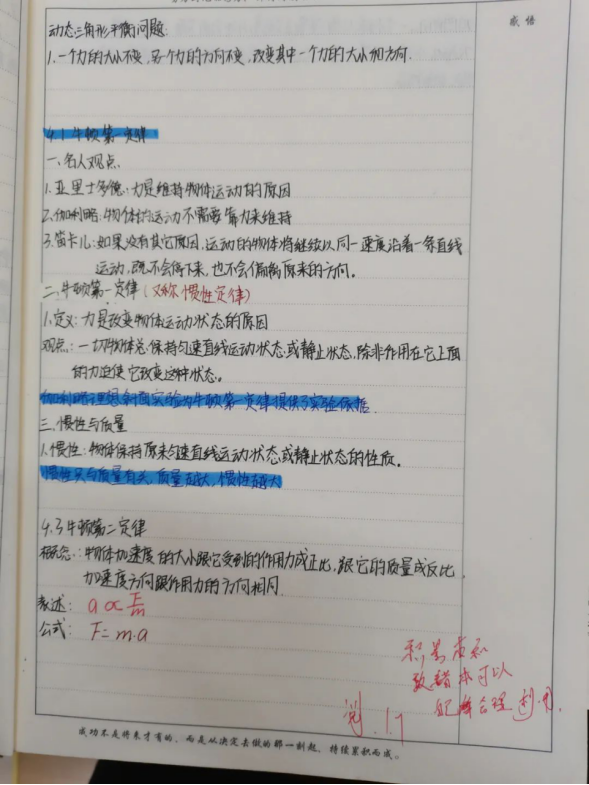 感悟
动态三角形平衡问题:
1.一个力的大小不变,另个力的方向不变,改变其中一个力的大小和方向.
4.1牛顿第一定律
一、名人观点.
1.亚里士多德:力是维持物体运动的原因
2.伽利略:物体的运动不需要靠力来维持
3.笛卡儿:如果没有其它原因,运动的物体将继续以同一速度沿着一条直线
运动,既不会停下来,也不会偏离原来的方向。
二、牛顿第一定律(又称惯性定律)
1.定义:力是改变物体运动状态的原因
观点:一切物体总保持匀速直线运动状态或静止状态,除非作用在它上面
的力迫使它改变这种状态。
伽利略理想斜面实验为牛顿第一定律提供了实验依据.
三.惯性与质量
1.惯性:物体保持原来匀速直线运动状态或静止状态的性质。
惯性只与质量有关,质量越大,惯性越大
4.3牛顿第二定律
概念:物体加速度的大小跟它受到的作用力成正比,跟它的质量成反比,
加速度方向跟作用力的方向相同.
表述: a∝F/m
公式: F=m·a
可以
合理
成功不是将来才有的,而是从决定去做的那一刻起,持续累积而成。